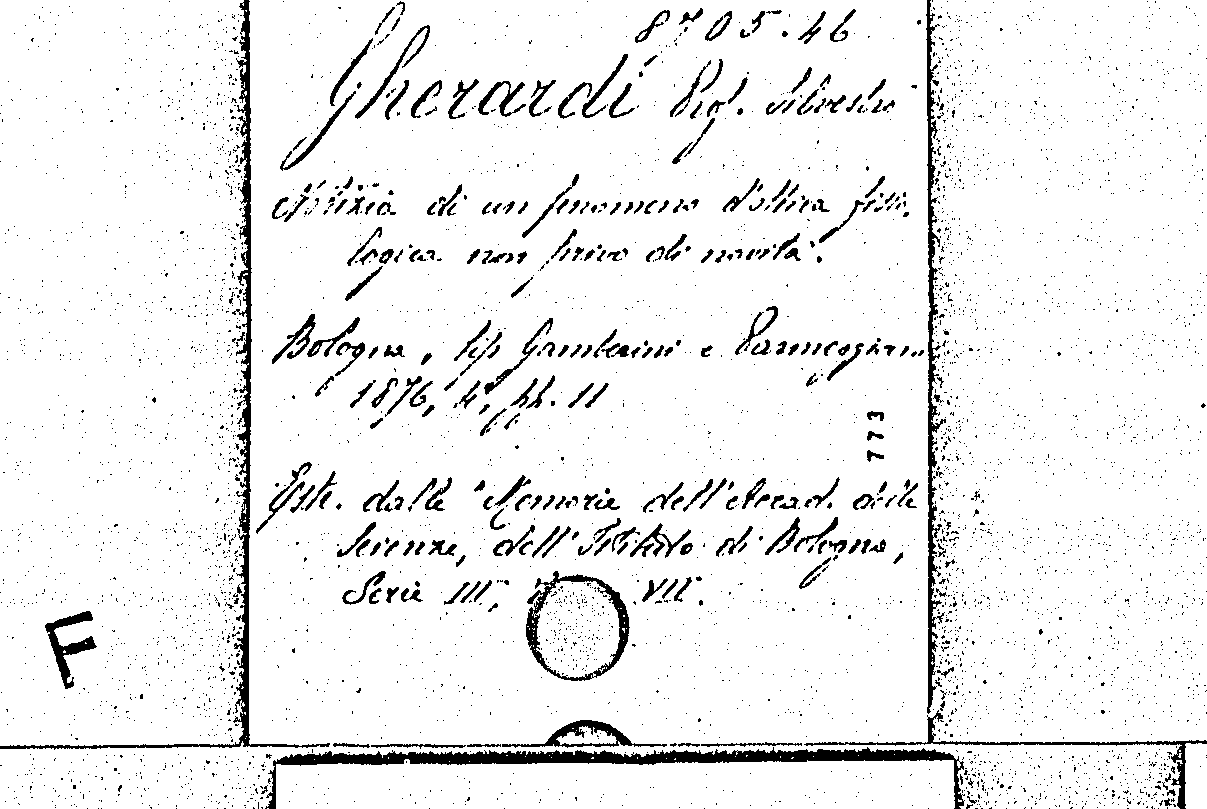 8705.46
Gherardi Prof. Silvestro
Notizia di un fenomeno d'ottica fisio-
logica non privo di novità.
Bologna, tip Gamberini e Parmeggiani
1876, 4°, pp. 11
773
Estr. dalle "Memorie dell'Accad. delle
Scienze, dell'Istituto di Bologna,
Serie III, VII.
F